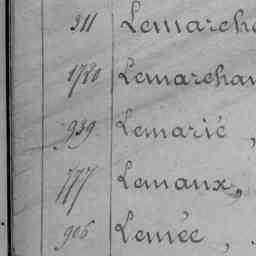 311 Lemarcha
1720 Lemarchan
939. Lemarié,
777 Lemaux,
906 Lemée,